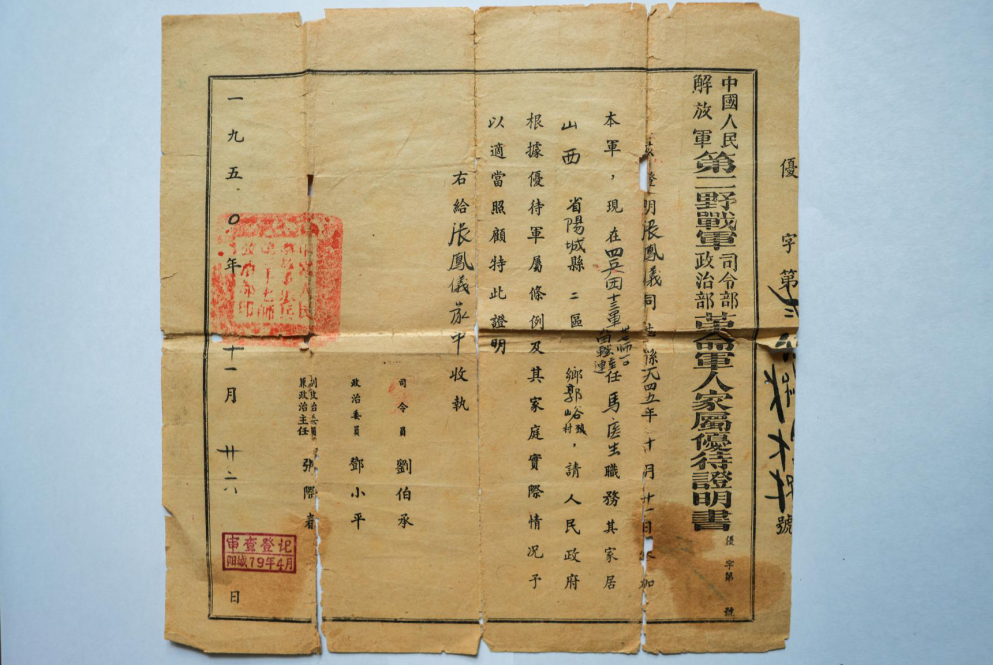 優 字 第 號
中國人民解放軍第二野戰軍司令部政治部革命軍人家屬優待證明書
優 字第 號
證明張鳳儀同志係一九四五年十月廿一日參加
本軍,現在四兵团 任馬医生職務其家居
山西 省陽城縣 二區 鄉郭谷鎮 村,請人民政府
根據優待軍屬條例及其家庭實際情况予
以適當照顧特此證明
右給張鳳儀家中收執
司令員 劉伯承
政治委員 鄧小平
副政治委員兼政治主任 張際春
一九五〇年 十一月 廿六 日
審查登記
陽城79年4月